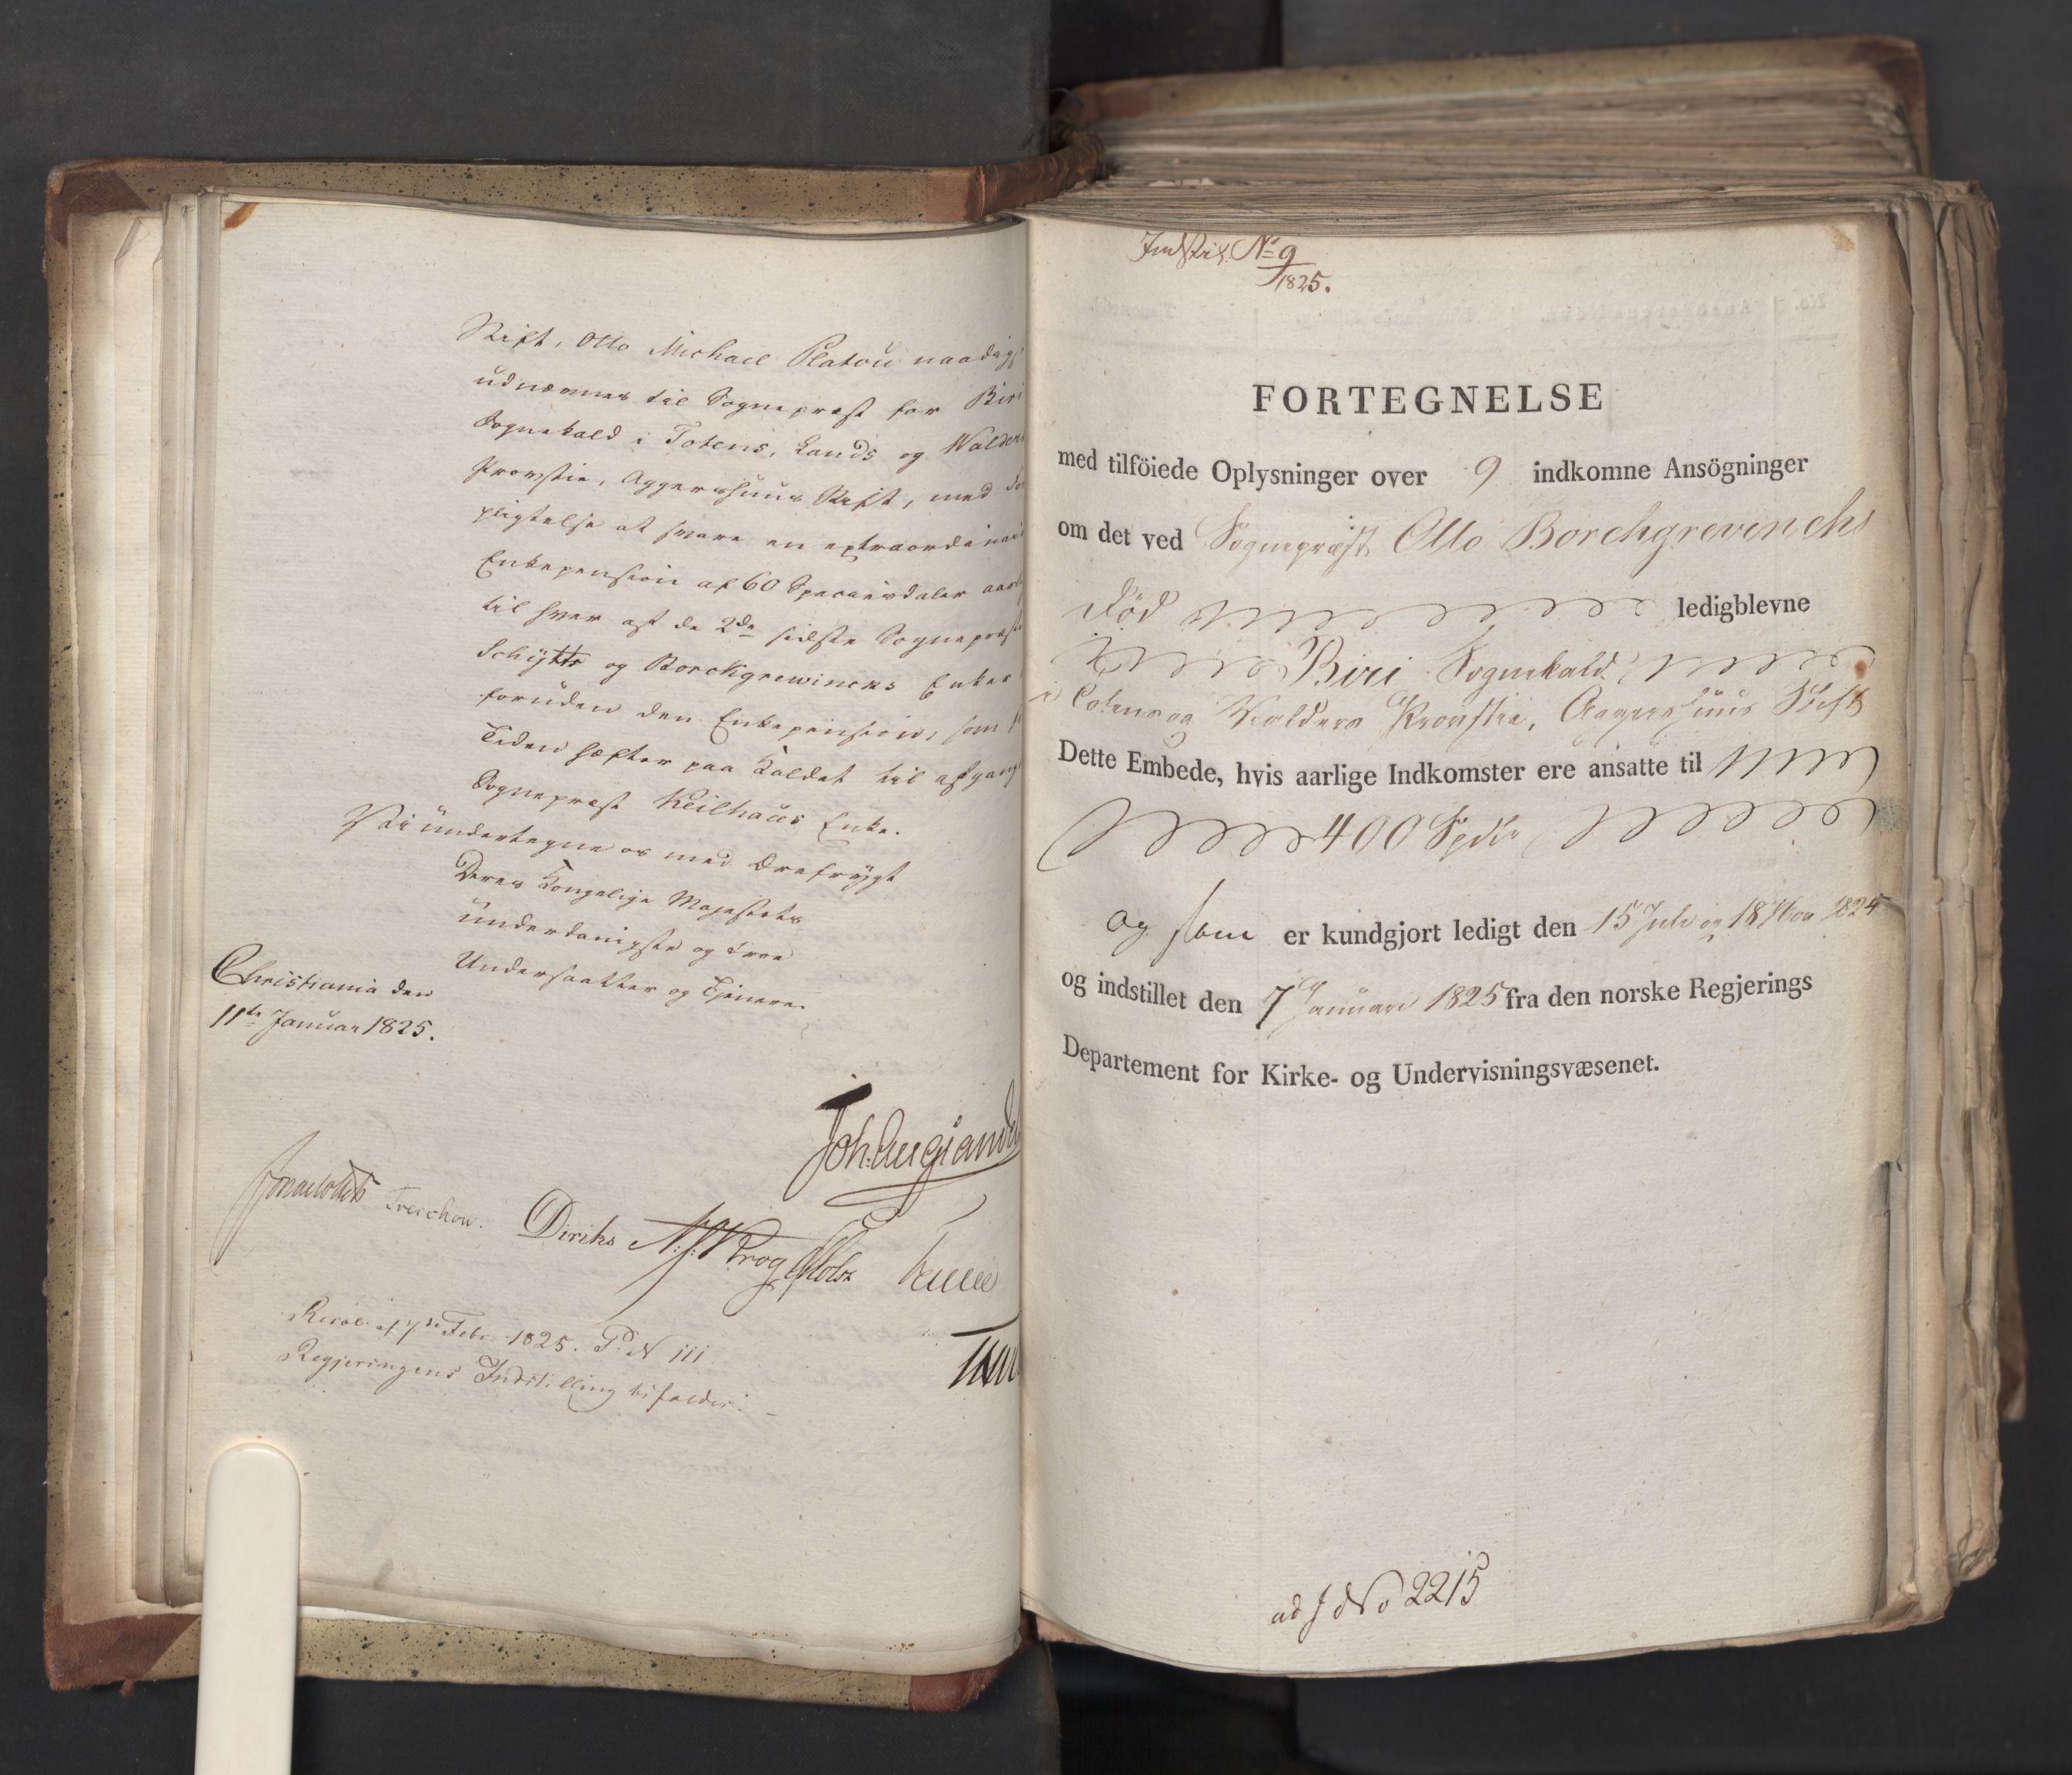 Stift, Otto Michael Platou naadigst
udnævnes til Sognepræst for Biri
Sognekald i Totens, Lands og Walders
Provstie, Aggershuus Stift, med For
pligtelse at svare en extraordinair
Enkepension af 60 Speciesdaler aarlig
til hver af de 2de sidste Sognepræster
Schytts og Borchgrewincks Enker
foruden den Enkepension, som for
Tiden hæfter paa Kaldet til afgangne
Sognepræst Keilhaus Enke.
Vi undertegne os med Ærefrygt
Deres Kongelige Majestæts
underdanigste og troe
Undersaatter og Tjenere.
Christiania den
11te Januar 1825.
Joh. Aug. Sande
Jonas Collett Treschow. Diriks Holst
Resol. af 7de Febr. 1825. P. N 111
Regjeringens Indstilling bifaldes.
Indstil. No 9
1825.
FORTEGNELSE
med tilföiede Oplysninger over 9 indkomne Ansögninger
om det ved Sognepræst Otto Borchgrevincks
Död ledigblevne
Biri Sognekald
i Totens og Valders Provstie, Aggershuus Stift
Dette Embede, hvis aarlige Indkomster ere ansatte til
400 Spdlr
og som er kundgjort ledigt den 15 Juli og 18 Nov 1824
og indstillet den 7 Januari 1825 fra den norske Regjerings
Departement for Kirke- og Undervisningsvæsenet.
ad J No 2215